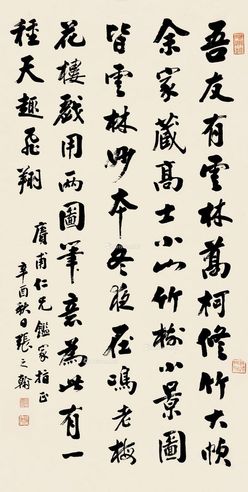 吾友有雲林萬柯修竹大幀
余家藏高士小山竹樹小景圖
皆雲林妙本冬夜在馮老梅
花樓戲用兩圖筆意為此有一
種天趣飛翔
膺甫仁兄鑑家指正
辛酉秋日張之翰